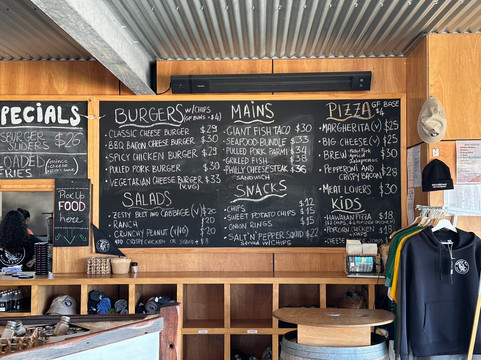 SPECIALS
BURGER $26
SLIDERS
LOADED
FRIES
Pick Up
FOOD
HERE
BURGERS W/CHIPS
(GF BUNS +$4)
CLASSIC CHEESE BURGER $29
BBQ BACON CHEESE BURGER $30
SPICY CHICKEN BURGER $29
PULLED PORK BURGER $30
VEGETARIAN CHEESE BURGER $33
(V,VG)
SALADS
ZESTY BEET AND CABBAGE (V) $20
RANCH $20
CRUNCHY PEANUT (VG) $20
ADD CRISPY CHICKEN OR SQUID +$8
MAINS
GIANT FISH TACO $30
SEAFOOD BUNDLE $33
PULLED PORK PARMI $34
GRILLED FISH $38
PHILLY CHEESE STEAK $36
SANDWICH
SNACKS
CHIPS $12
SWEET POTATO CHIPS $15
ONION RINGS $15
SALT'N'PEPPER SQUID $22
PIZZA GF BASE
$4
MARGHERITA (V) $25
BIG CHEESE (V) $25
BREW $30
PEPPERONI AND $30
CRISPY BACON
MEAT LOVERS $30
KIDS
HAWAIIAN PIZZA $18
POPCORN CHICKEN $18
CHIPS